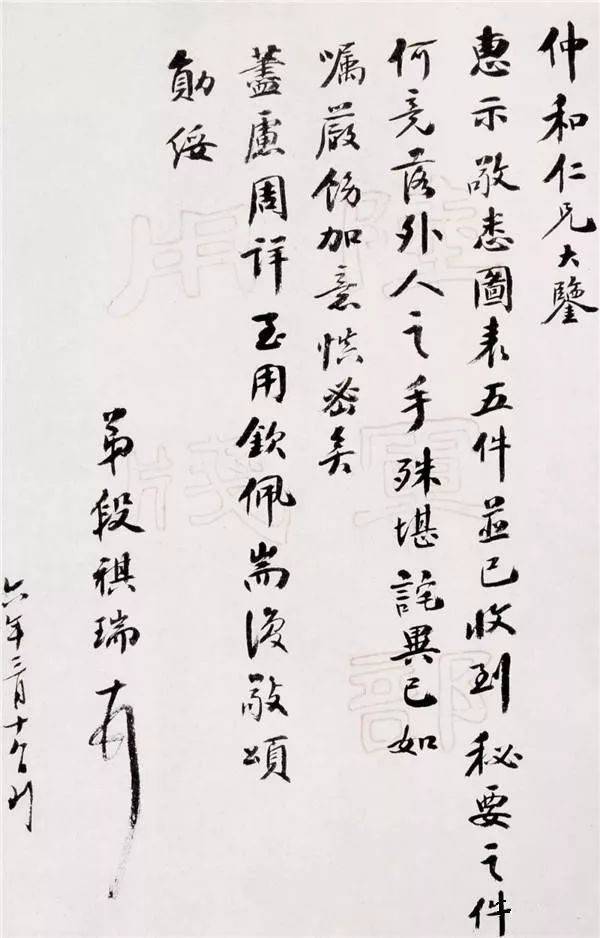 仲和仁兄大鑒
惠示敬悉圖表五件並已收到秘要之件
何竟落外人之手殊堪詫異已如
囑嚴飭加意慎密矣
藎慮周詳至用欽佩耑復敬頌
勛綏
弟段祺瑞
六年三月十日
陸軍部
用牋